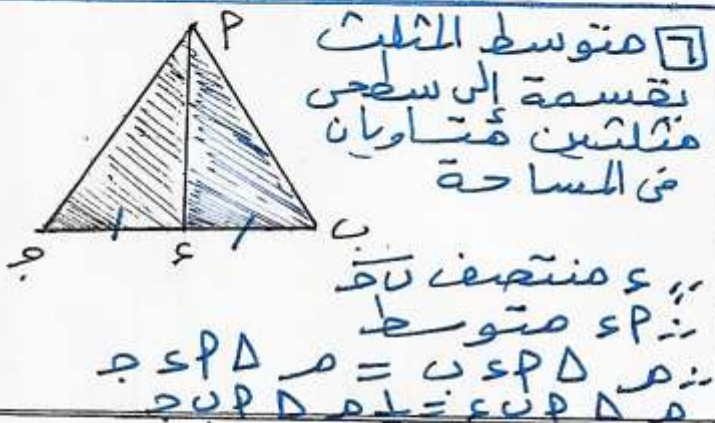 ٦ متوسط المثلث
يقسمه إلى سطحى
مثلثين متساويان
فى المساحة
م
ب
ء
ج
∵ ء منتصف ب ج
∴ م ء متوسط
∴ م Δ م ء ب = م Δ م ء ج
م Δ م ب ء = ١/٢ م Δ م ب ج